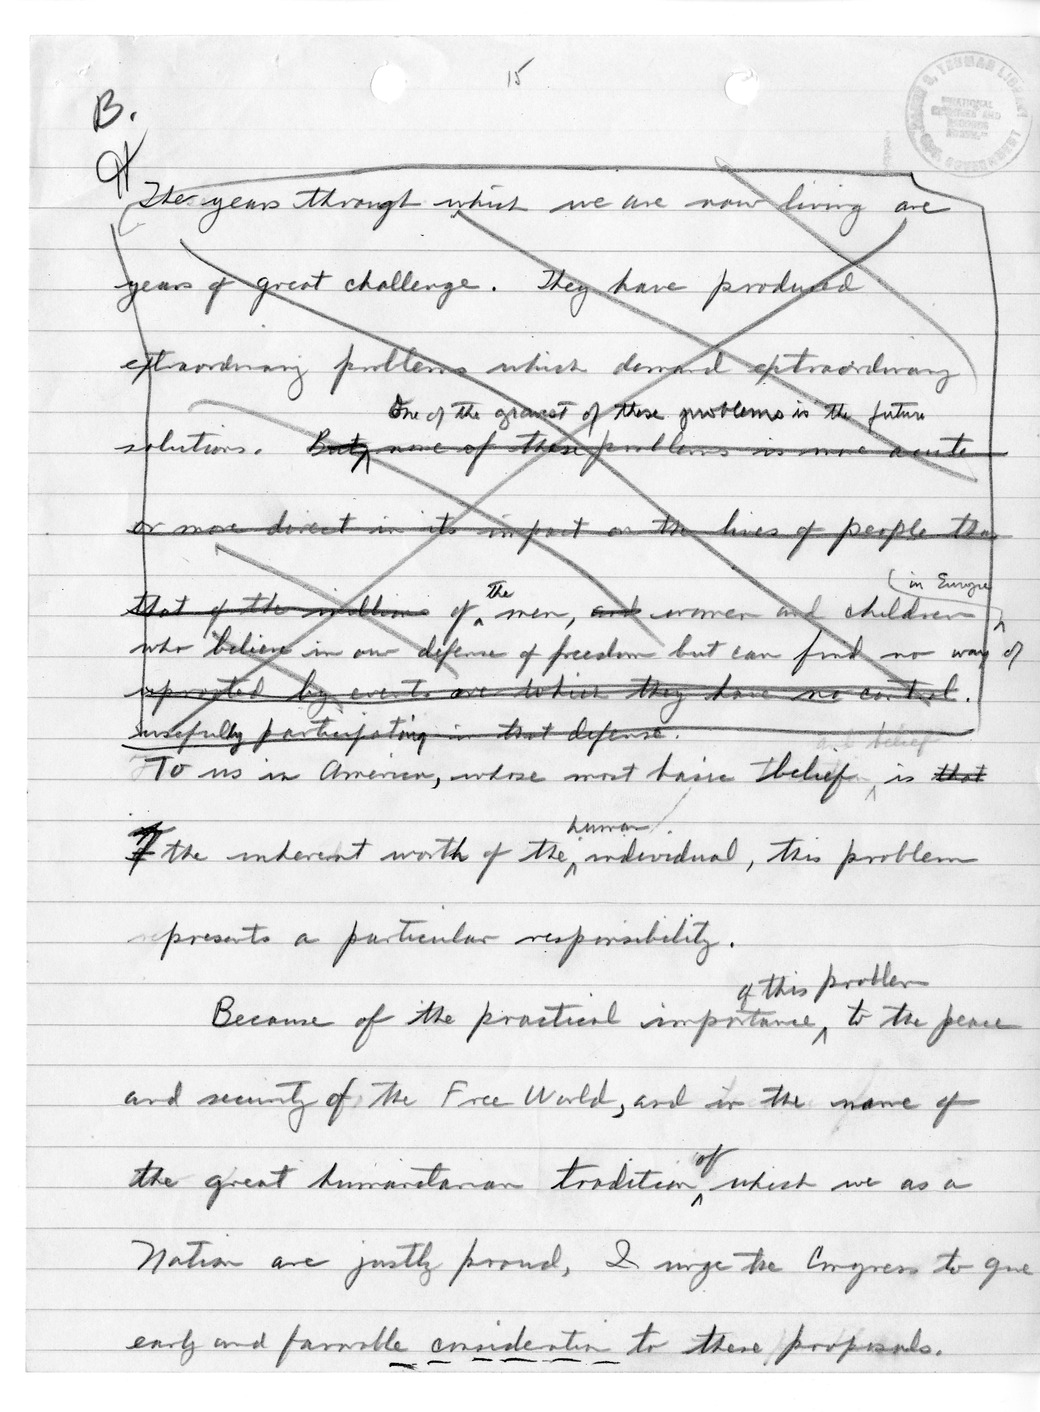 15
B.
The years through which we are now living are
years of great challenge. They have produced
extraordinary problems which demand extraordinary
One of the gravest of these problems is the future
solutions. But none of these problems is more acute
or more direct in its impact on the lives of people than
in Europe
that of the millions of the men, and women and children
who believe in our defense of freedom but can find no way of
uprooted by events over which they have no control.
usefully participating in that defense.
and belief
To us in America, whose most basic belief is that
human
of the inherent worth of the individual, this problem
represents a particular responsibility.
of this problem
Because of the practical importance, to the peace
and security of the Free World, and in the name of
of
the great humanitarian tradition which we as a
Nation are justly proud, I urge the Congress to give
early and favorable consideration to these proposals.
HARRY S. TRUMAN LIBRARY
NATIONAL ARCHIVES AND RECORDS
GOVERNMENT